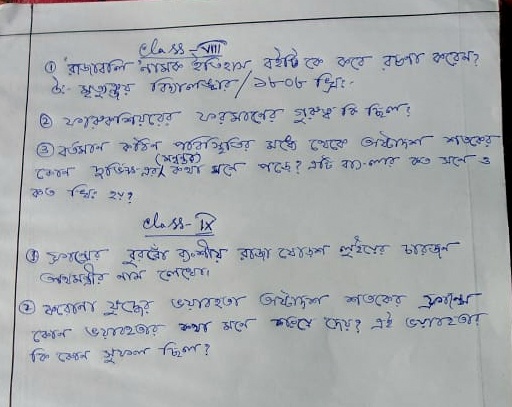 Class-VIII
① 'রাজাবলি' নামক ইতিহাস বইটি কে কবে রচনা করেন?
উঃ- মৃত্যুঞ্জয় বিদ্যালঙ্কার / ১৮০৮ খ্রিঃ-
② ফারুকশিয়রের ফরমানের গুরুত্ব কি ছিল?
③ বর্তমান কঠিন পরিস্থিতির মধ্যে থেকে অষ্টাদশ শতকের
(মন্বন্তর)
কোন দুর্ভিক্ষ-এর কথা মনে পড়ে? এটি বাং-লার কত সালে ও
কত খ্রিঃ হয়?
Class-IX
① ফ্রান্সের বুরবোঁ বংশীয় রাজা ষোড়শ লুইয়ের চারজন
অর্থমন্ত্রীর নাম লেখো।
② করোনা যুদ্ধের ভয়াবহতা অষ্টাদশ শতকের ফ্রান্সে
কোন ভয়াবহতার কথা মনে করিয়ে দেয়? এই ভয়াবহতা
কি কোন সুফল ছিল?